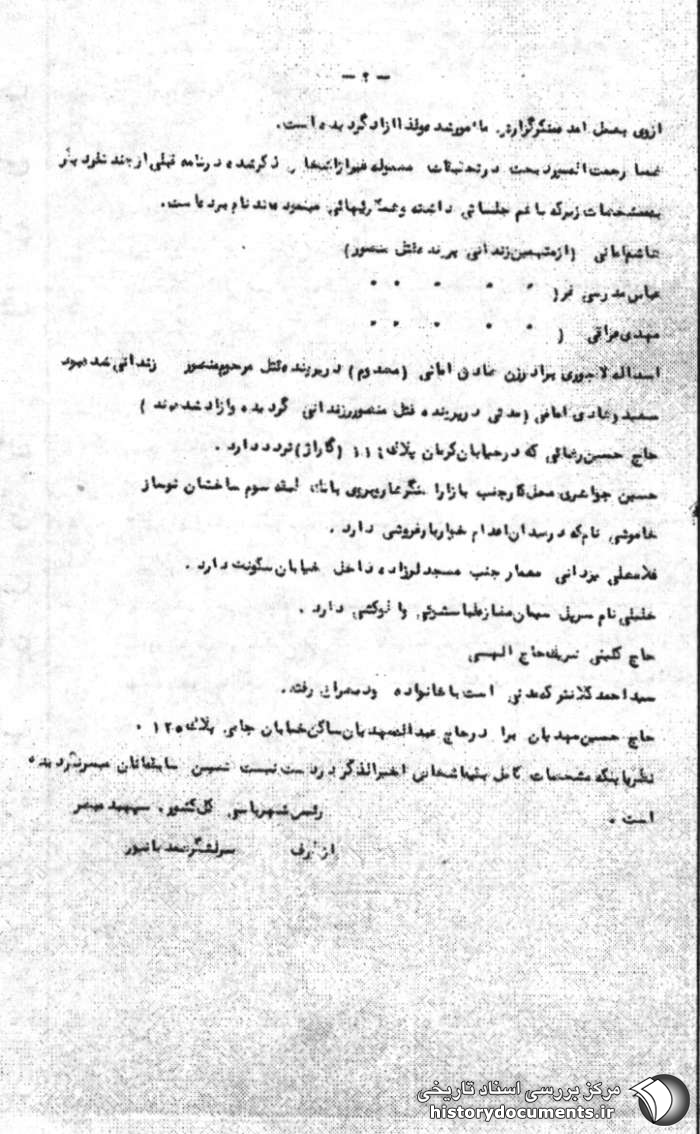 - ۲ -
ازوی بعمل امد منکر گزارش مامور شد ولذا ازاد گردیده است.
ضمنا رحمت اله در تحقیقات معموله غیر از اشخاص ذکر شده در نامه قبلی از چند نفر دیگر
بمشخصات زیر که با هم جلساتی داشته و میتینگهائی مینمودهاند نام برده است.
هاشم امانی (از متهمین زندانی پرونده قتل منصور)
عباس مدرسی فر( " " " " "
مهدی عراقی ( " " " " "
اسداله لاجوردی برادرزن صادق امانی (معدوم) در پرونده قتل مرحوم منصور زندانی شده بود
سعید و هادی امانی (مدتی در پرونده قتل منصور زندانی گردیده و ازاد شدهاند )
حاج حسین رضائی که در خیابان کرمان پلاک ۱۱۴ (گاراژ) تردد دارد .
حسین جواهری محل کار جنب بازار روبروی بانک طبقه سوم ساختمان نوساز
خاموشی نام که در میدان اعدام خواربار فروشی دارد .
غلامعلی یزدانی معمار جنب مسجد لرزاده داخل خیابان سکونت دارد .
خلیلی نام سرپل سیمان مغازه لباسشوئی و اتوکشی دارد .
حاج کلینی شریک حاج الهی
سید احمد کلانتر که مدتی است با خانواده خود بعراق رفته.
حاج حسین مهدیان برادر حاج عبداله مهدیان ساکن خیابان جامی پلاک ۱۲۵ .
نظر باینکه مشخصات کامل بقیه اشخاص اخیرالذکر در دست نیست تعیین سابقه انان میسر نگردیده
است .
رئیس شهربانی کل کشور. سپهبد مبصر
از طرف سرلشگر صمدیانپور
مرکز بررسی اسناد تاریخی
historydocuments.ir